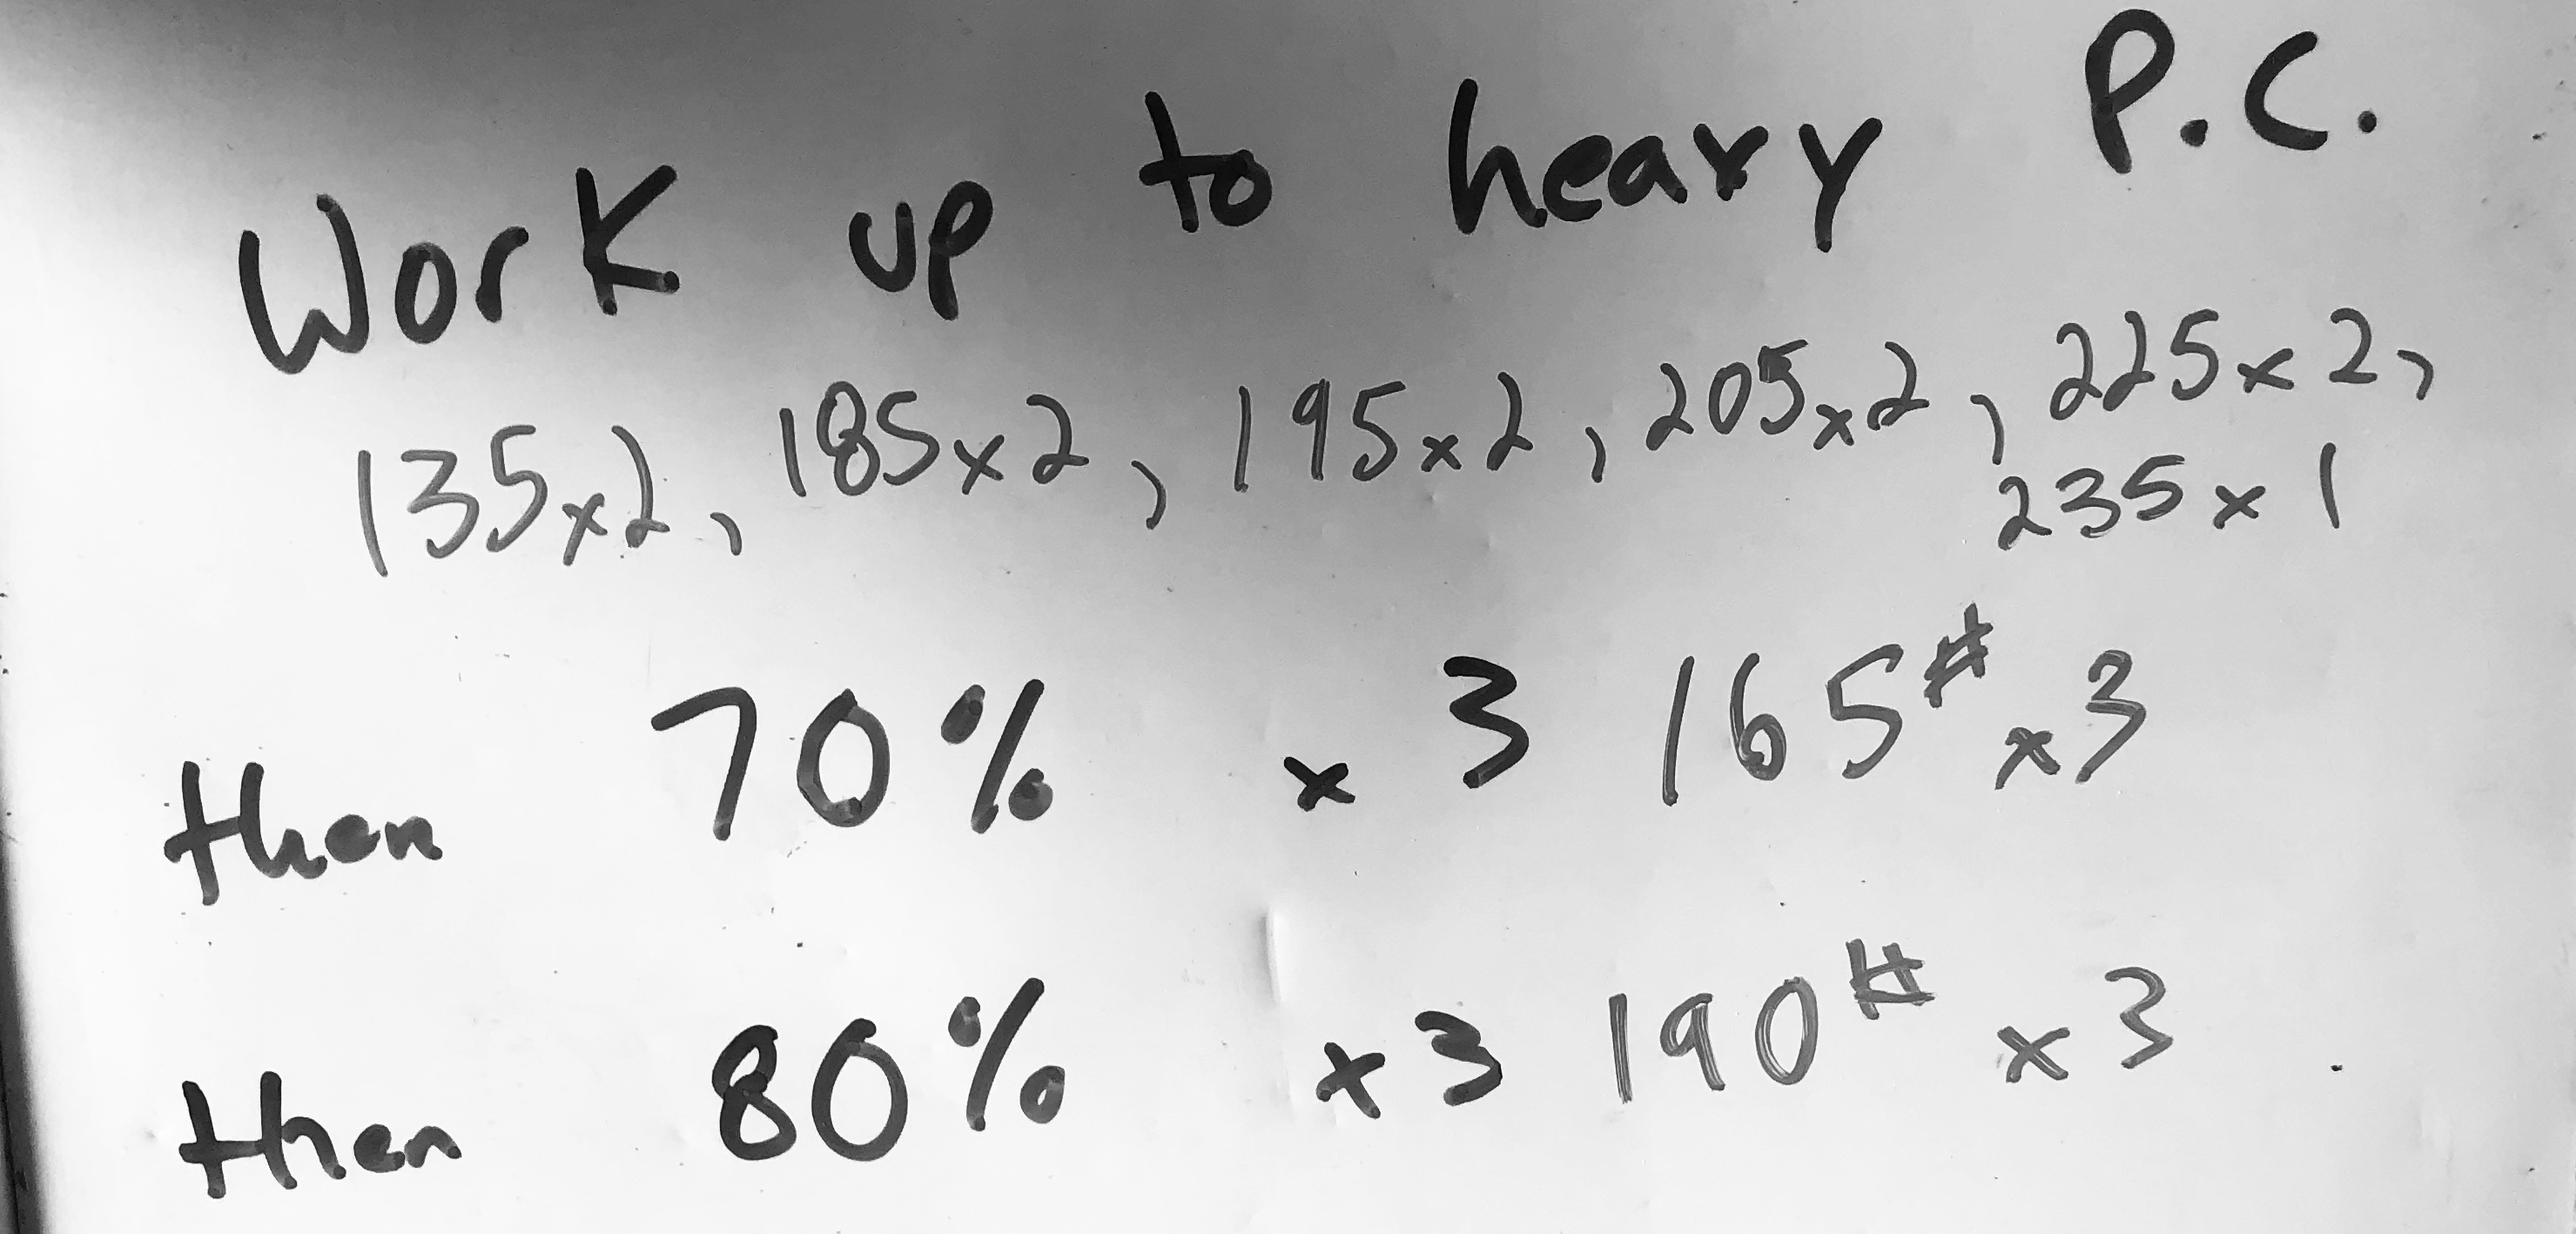 Work up to heavy P.C.
135x2, 185x2, 195x2, 205x2, 225x2,
235x1
then 70% x 3 165# x3
then 80% x3 190# x3